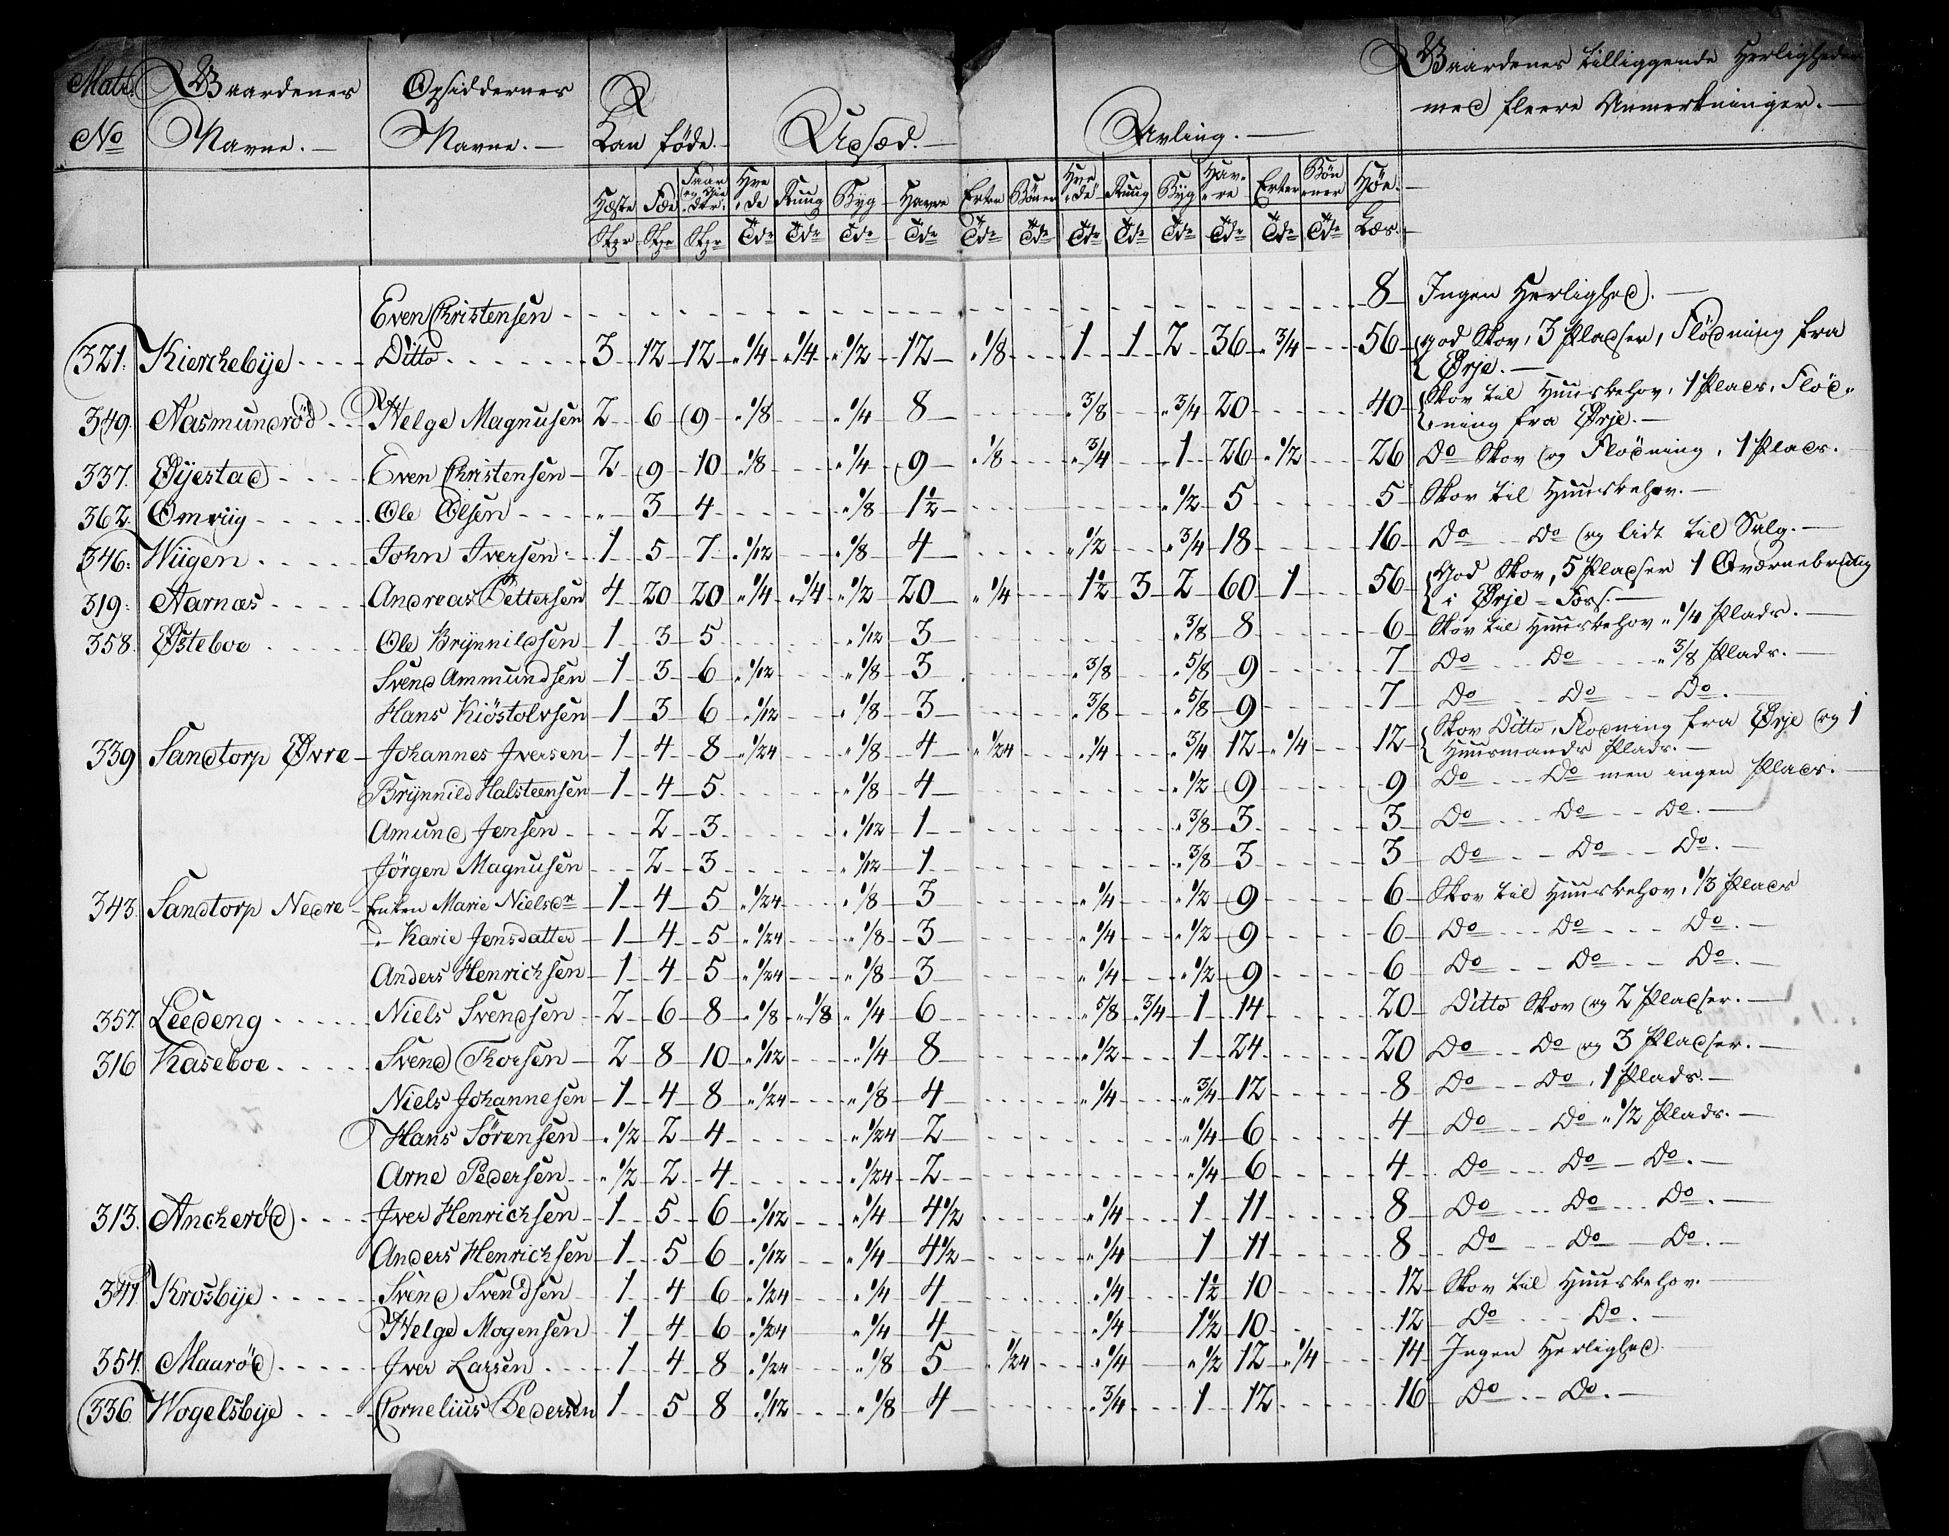 Matr. Gaardenes Opsiddernes Kan føde. Udsæd. Avling. Gaardenes tilliggende Herligheder
No Navne. Navne. med fleere Anmerkninger.
Hæste Fæe Faar og Gieder Hvede Ruug Byg Havre Erter Bönner Hvede Rug Byg Havre Erter Bönner Höe
Stkr Stkr Stkr Tdr Tdr Tdr Tdr Tdr Tdr Tdr Tdr Tdr Tdr Tdr Tdr Læs
Even Christensen 8 Ingen Herlighed.
321. Kierckebÿe Ditto 3 12 12 " 1/4 " 1/4 " 1/2 12 " 1/8 1 1 2 36 " 3/4 56 god Skov, 3 Pladser, Flödning fra
Ørje.
349. Aasmundröd Helge Magnusen 2 6 9 " 1/8 " 1/4 8 " 3/8 " 3/4 20 40 Skov til Huusbehov, 1 Plads, Flöd-
ning fra Ørje.
337. Øÿestad Even Christensen 2 9 10 " 1/8 " 1/4 9 " 1/8 " 3/4 1 26 " 1/2 26 Do Skov og Flödning, 1 Plads.
362. Omrüg Ole Olsen " 3 4 " 1/8 1 1/2 " 1/2 5 5 Skov til Huusbehov.
346. Wiigen John Iversen 1 5 7 " 1/12 " 1/8 4 " 1/2 " 3/4 18 16 Do Do og lidt til Salg.
319. Aarnæs Andreas Pettersen 4 20 20 " 1/4 " 1/4 " 1/2 20 " 1/4 1 1/2 3 2 60 1 56 God Skov, 5 Pladser 1 Qværnebrug
i Ørje-Foss.
358. Østeboe Ole Brÿnnildsen 1 3 5 " 1/12 3 " 3/8 8 6 Skov til Huusbehov " 1/4 Plads.
Svend Ammundsen 1 3 6 " 1/12 " 1/8 3 " 3/8 " 5/8 9 7 Do Do " 3/8 Plads.
Hans Kiöstolvsen 1 3 6 " 1/12 " 1/8 3 " 3/8 " 5/8 9 7 Do Do Do.
339 Sandtorp Øvre Johannes Iversen 1 4 8 " 1/24 " 1/8 4 " 1/24 " 1/4 " 3/4 12 " 1/4 12 Skov Ditto, Flödning fra Ørje og 1
Huusmands Plads.
Brÿnnild Halsteensen 1 4 5 " 1/8 4 " 1/2 9 9 Do Do men ingen Plads.
Amund Jensen 2 3 " 1/12 1 " 3/8 3 3 Do Do Do.
Jörgen Magnusen 2 3 " 1/12 1 " 3/8 3 3 Do Do Do.
343. Sandtorp Nedre Enken Marie Nielsdr 1 4 5 " 1/24 " 1/8 3 " 1/4 " 1/2 9 6 Skov til Huusbehov, 1/3 Plads
Do Karie Jensdatter 1 4 5 " 1/24 " 1/8 3 " 1/4 " 1/2 9 6 Do Do Do.
Anders Henrichsen 1 4 5 " 1/24 " 1/8 3 " 1/4 " 1/2 9 6 Do Do Do.
357. Leedeng Niels Svendsen 2 6 8 " 1/8 " 1/8 " 1/4 6 " 5/8 " 3/4 1 14 20 Ditto Skov og 2 Pladser.
316 Kaseboe Svend Thorsen 2 8 10 " 1/12 " 1/4 8 " 1/2 1 24 20 Do Do og 3 Pladser.
Niels Johannesen 1 4 8 " 1/24 " 1/8 4 " 1/4 " 3/4 12 8 Do Do, 1 Plads.
Hans Sörensen " 1/2 2 4 " 1/24 2 " 1/4 6 4 Do Do " 1/2 Plads.
Arne Pedersen " 1/2 2 4 " 1/24 2 " 1/4 6 4 Do Do Do.
313. Anckeröd Iver Henrichsen 1 5 6 " 1/12 " 1/4 4 1/2 " 1/4 1 11 8 Do Do Do.
Anders Henrichsen 1 5 6 " 1/12 " 1/4 4 1/2 " 1/4 1 11 8 Do Do Do.
341. Krosbÿe Svend Svendsen 1 4 6 " 1/24 " 1/4 4 " 1/4 1 1/2 10 12 Skov til Huusbehov.
Helge Mogensen 1 4 6 " 1/24 " 1/4 4 " 1/4 1 1/2 10 12 Do Do.
354. Mauröd Iver Larsen 1 4 8 " 1/24 " 1/8 5 " 1/24 " 1/4 " 1/2 12 " 1/4 14 Ingen Herlighed.
336 Wogelsbÿe Cornelius Pedersen 1 5 8 " 1/12 " 1/8 4 " 3/4 1 12 16 Do Do.